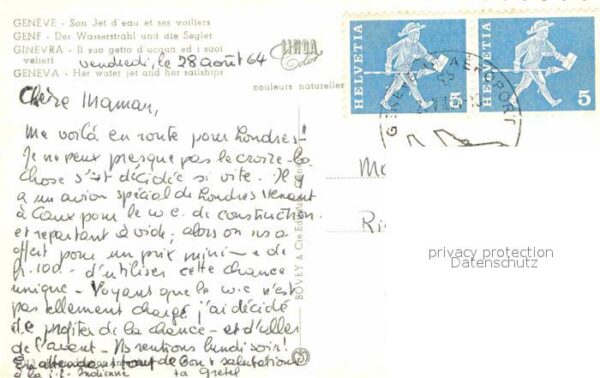 GENÈVE - Son Jet d'eau et ses voiliers
GENF - Der Wasserstrahl und die Segler
GINEVRA - Il suo getto d'acqua ed i suoi
velieri
GENEVA - Her water jet and her sailships
LINDA
Color
couleurs naturelles
HELVETIA 5
HELVETIA 5
GENÈVE AEROPORT
vendredi, le 28 août 64
Chère Maman,
Me voilà en route pour Londres!
Je ne peux presque pas le croire - la
chose s'est décidée si vite. Il y
a un avion spécial de Londres venant
à Caux pour le w.e. de construction
et repartant à vide; alors on ns a
offert pour un prix minime de
fr. 100.- d'utiliser cette chance
unique - Voyant que le w.e n'est
pas tellement chargé j'ai décidé
de profiter de la chance - et d'aller
de l'avant. Ns rentrons lundi soir!
En attendant tout de bon + salutations
à la p.f. Indienne ta Gretel
BOVEY & Cie Ed.
Me
Ri
privacy protection
Datenschutz